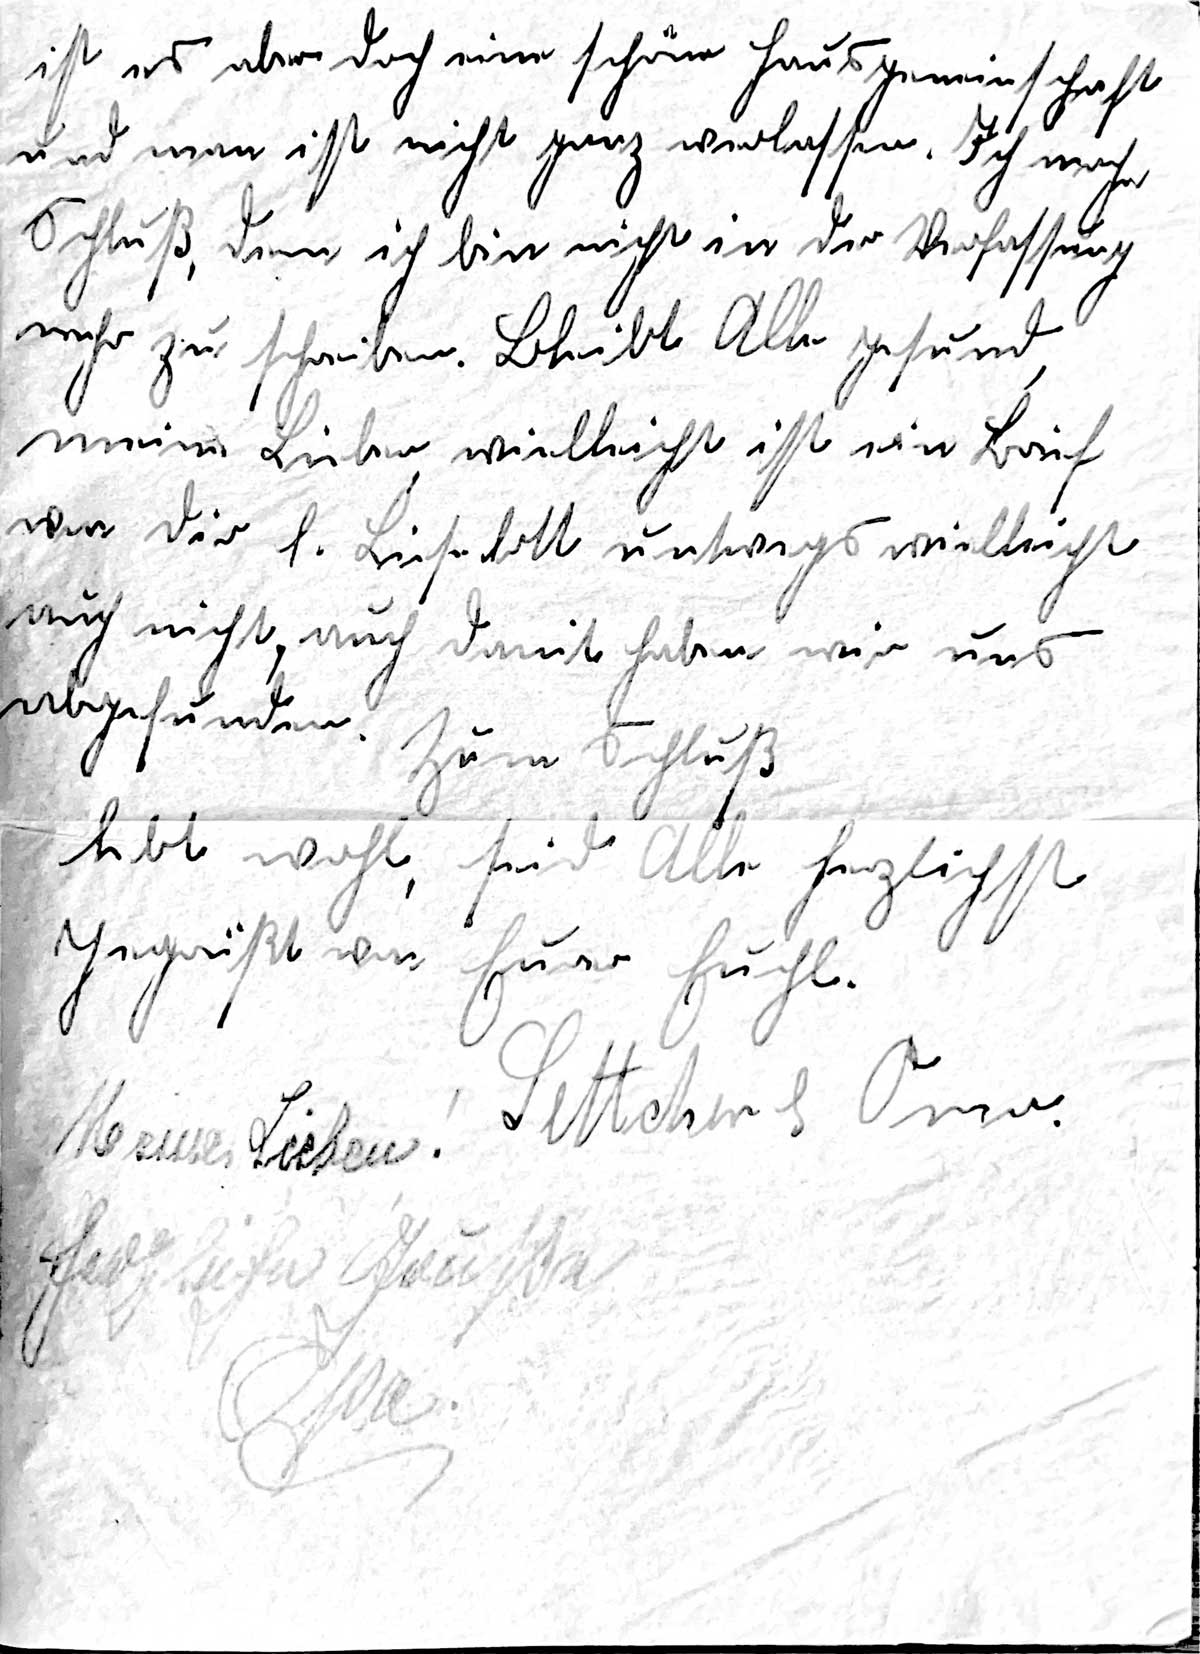 ist es aber doch eine schöne Hausgemeinschaft
und man ist nicht ganz verlassen. Ich mache
Schluß, denn ich bin nicht in der Verfassung
mehr zu schreiben. Bleibt Alle gesund,
meine Lieben, vielleicht ist ein Brief
von Dir l. Lieselott untwegs vielleicht
auch nicht, auch damit haben wir uns
abgefunden. Zum Schluß
lebt wohl, seid Alle herzlichst
gegrüßt von Eurer
Lettchen & Oma.
Meine Lieben!
Herzliche Grüße